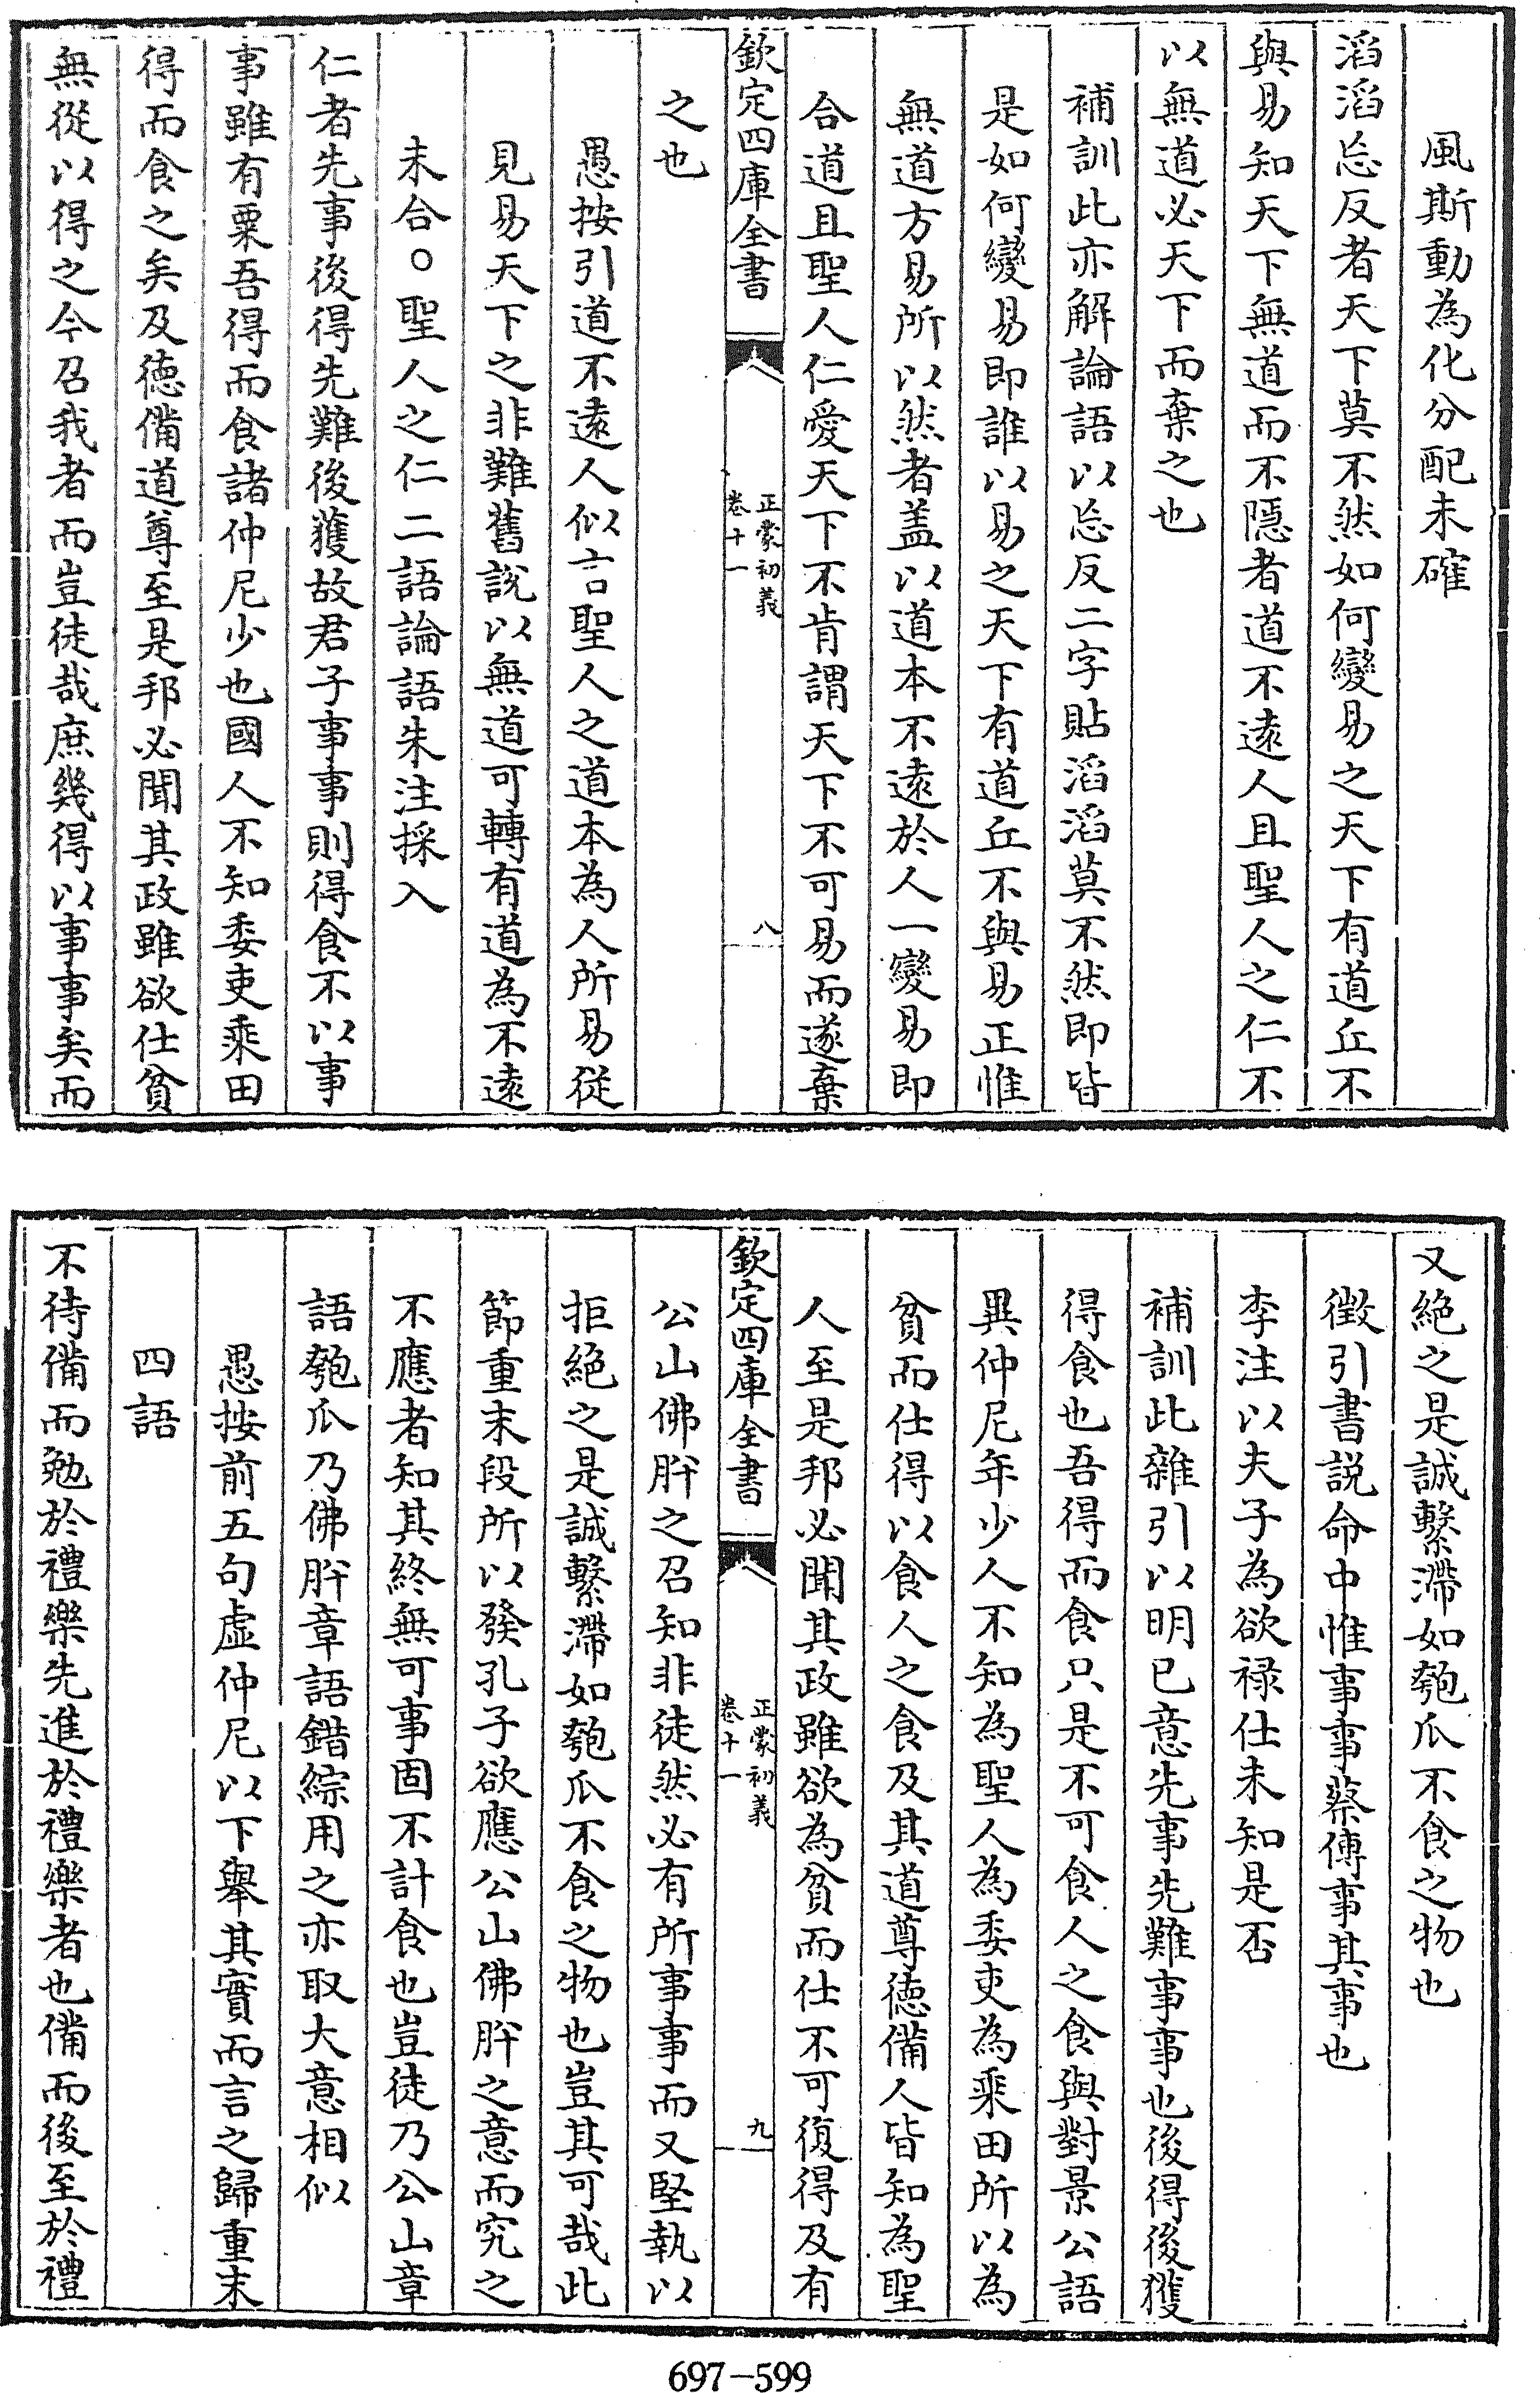 風斯動為化分配未確
滔滔忘反者天下莫不然如何變易之天下有道丘不
與易知天下無道而不隱者道不遠人且聖人之仁不
以無道必天下而棄之也
補訓此亦解論語以忘反二字貼滔滔莫不然即皆
是如何變易即誰以易之天下有道丘不與易正惟
無道方易所以然者盖以道本不遠於人一變易即
合道且聖人仁愛天下不肯謂天下不可易而遂棄
欽定四庫全書
正蒙初義
卷十一
八
之也
愚按引道不遠人似言聖人之道本為人所易從
見易天下之非難舊說以無道可轉有道為不遠
未合○聖人之仁二語論語朱注採入
仁者先事後得先難後獲故君子事事則得食不以事
事雖有粟吾得而食諸仲尼少也國人不知委吏乘田
得而食之矣及德備道尊至是邦必聞其政雖欲仕貧
無從以得之今召我者而豈徒哉庶幾得以事事矣而
又絕之是誠繫滯如匏瓜不食之物也
徴引書説命中惟事事蔡傳事其事也
李注以夫子為欲禄仕未知是否
補訓此雜引以明已意先事先難事事也後得後獲
得食也吾得而食只是不可食人之食與對景公語
異仲尼年少人不知為聖人為委吏為乘田所以為
貧而仕得以食人之食及其道尊德備人皆知為聖
人至是邦必聞其政雖欲為貧而仕不可復得及有
欽定四庫全書
正蒙初義
卷十一
九
公山佛肸之召知非徒然必有所事事而又堅執以
拒絕之是誠繫滯如匏瓜不食之物也豈其可哉此
節重末段所以發孔子欲應公山佛肸之意而究之
不應者知其終無可事固不計食也豈徒乃公山章
語匏瓜乃佛肸章語錯綜用之亦取大意相似
愚按前五句虛仲尼以下舉其實而言之歸重末
四語
不待備而勉於禮樂先進於禮樂者也備而後至於禮
697-599